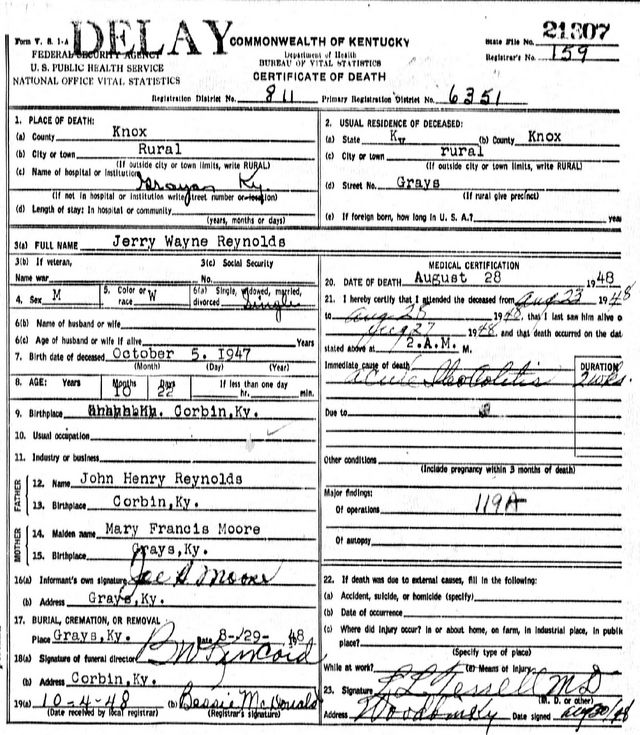 DELAY
Form V. S. 1-A
FEDERAL SECURITY AGENCY
U. S. PUBLIC HEALTH SERVICE
NATIONAL OFFICE VITAL STATISTICS
COMMONWEALTH OF KENTUCKY
Department of Health
BUREAU OF VITAL STATISTICS
CERTIFICATE OF DEATH
State File No. 21307
Registrar's No. 159
Registration District No. 811 Primary Registration District No. 6351
1. PLACE OF DEATH:
(a) County Knox
(b) City or town Rural
(If outside city or town limits, write RURAL)
(c) Name of hospital or institution
Grays, Ky.
(If not in hospital or institution write street number or location)
(d) Length of stay: In hospital or community
(years, months or days)
2. USUAL RESIDENCE OF DECEASED:
(a) State Ky (b) County Knox
(c) City or town rural
(If outside city or town limits, write RURAL)
(d) Street No. Grays
(If rural give precinct)
(e) If foreign born, how long in U. S. A.? years
3(a) FULL NAME Jerry Wayne Reynolds
3(b) If veteran,
Name war
3(c) Social Security
No.
4. Sex M
5. Color or race W
6(a) Single, widowed, married,
divorced Single
6(b) Name of husband or wife
6(c) Age of husband or wife if alive (Years)
7. Birth date of deceased October 5. 1947
(Month) (Day) (Year)
8. AGE: Years Months 10 Days 22 If less than one day
hr. min.
9. Birthplace Corbin, Ky.
10. Usual occupation
11. Industry or business
FATHER
12. Name John Henry Reynolds
13. Birthplace Corbin, Ky.
MOTHER
14. Maiden name Mary Francis Moore
15. Birthplace Grays, Ky.
16(a) Informant's own signature Moore
(b) Address Grays, Ky.
17. BURIAL, CREMATION, OR REMOVAL
Place Grays, Ky. Date 8-29- 48
18(a) Signature of funeral director
(b) Address Corbin, Ky.
19(a) 10-4-48 (b) Bessie McDonald
(Date received by local registrar) (Registrar's signature)
MEDICAL CERTIFICATION
20. DATE OF DEATH August 28 1948
21. I hereby certify that I attended the deceased from Aug 23 1948
to Aug 28 1948, that I last saw him alive o
Aug 27 1948, and that death occurred on the dat
stated above at 2.A.M. M.
Immediate cause of death
acute Ileo Colitis
DURATION
2 wks.
Due to
Other conditions
(Include pregnancy within 3 months of death)
Major findings:
Of operations 119A
Of autopsy
22. If death was due to external causes, fill in the following:
(a) Accident, suicide, or homicide (specify)
(b) Date of occurrence
(c) Where did injury occur? In or about home, on farm, in industrial place, in public
place?
(Specify type of place)
While at work? (e) Means of Injury
23. Signature MD
(M. D. or other)
Address Date signed Aug 30/48